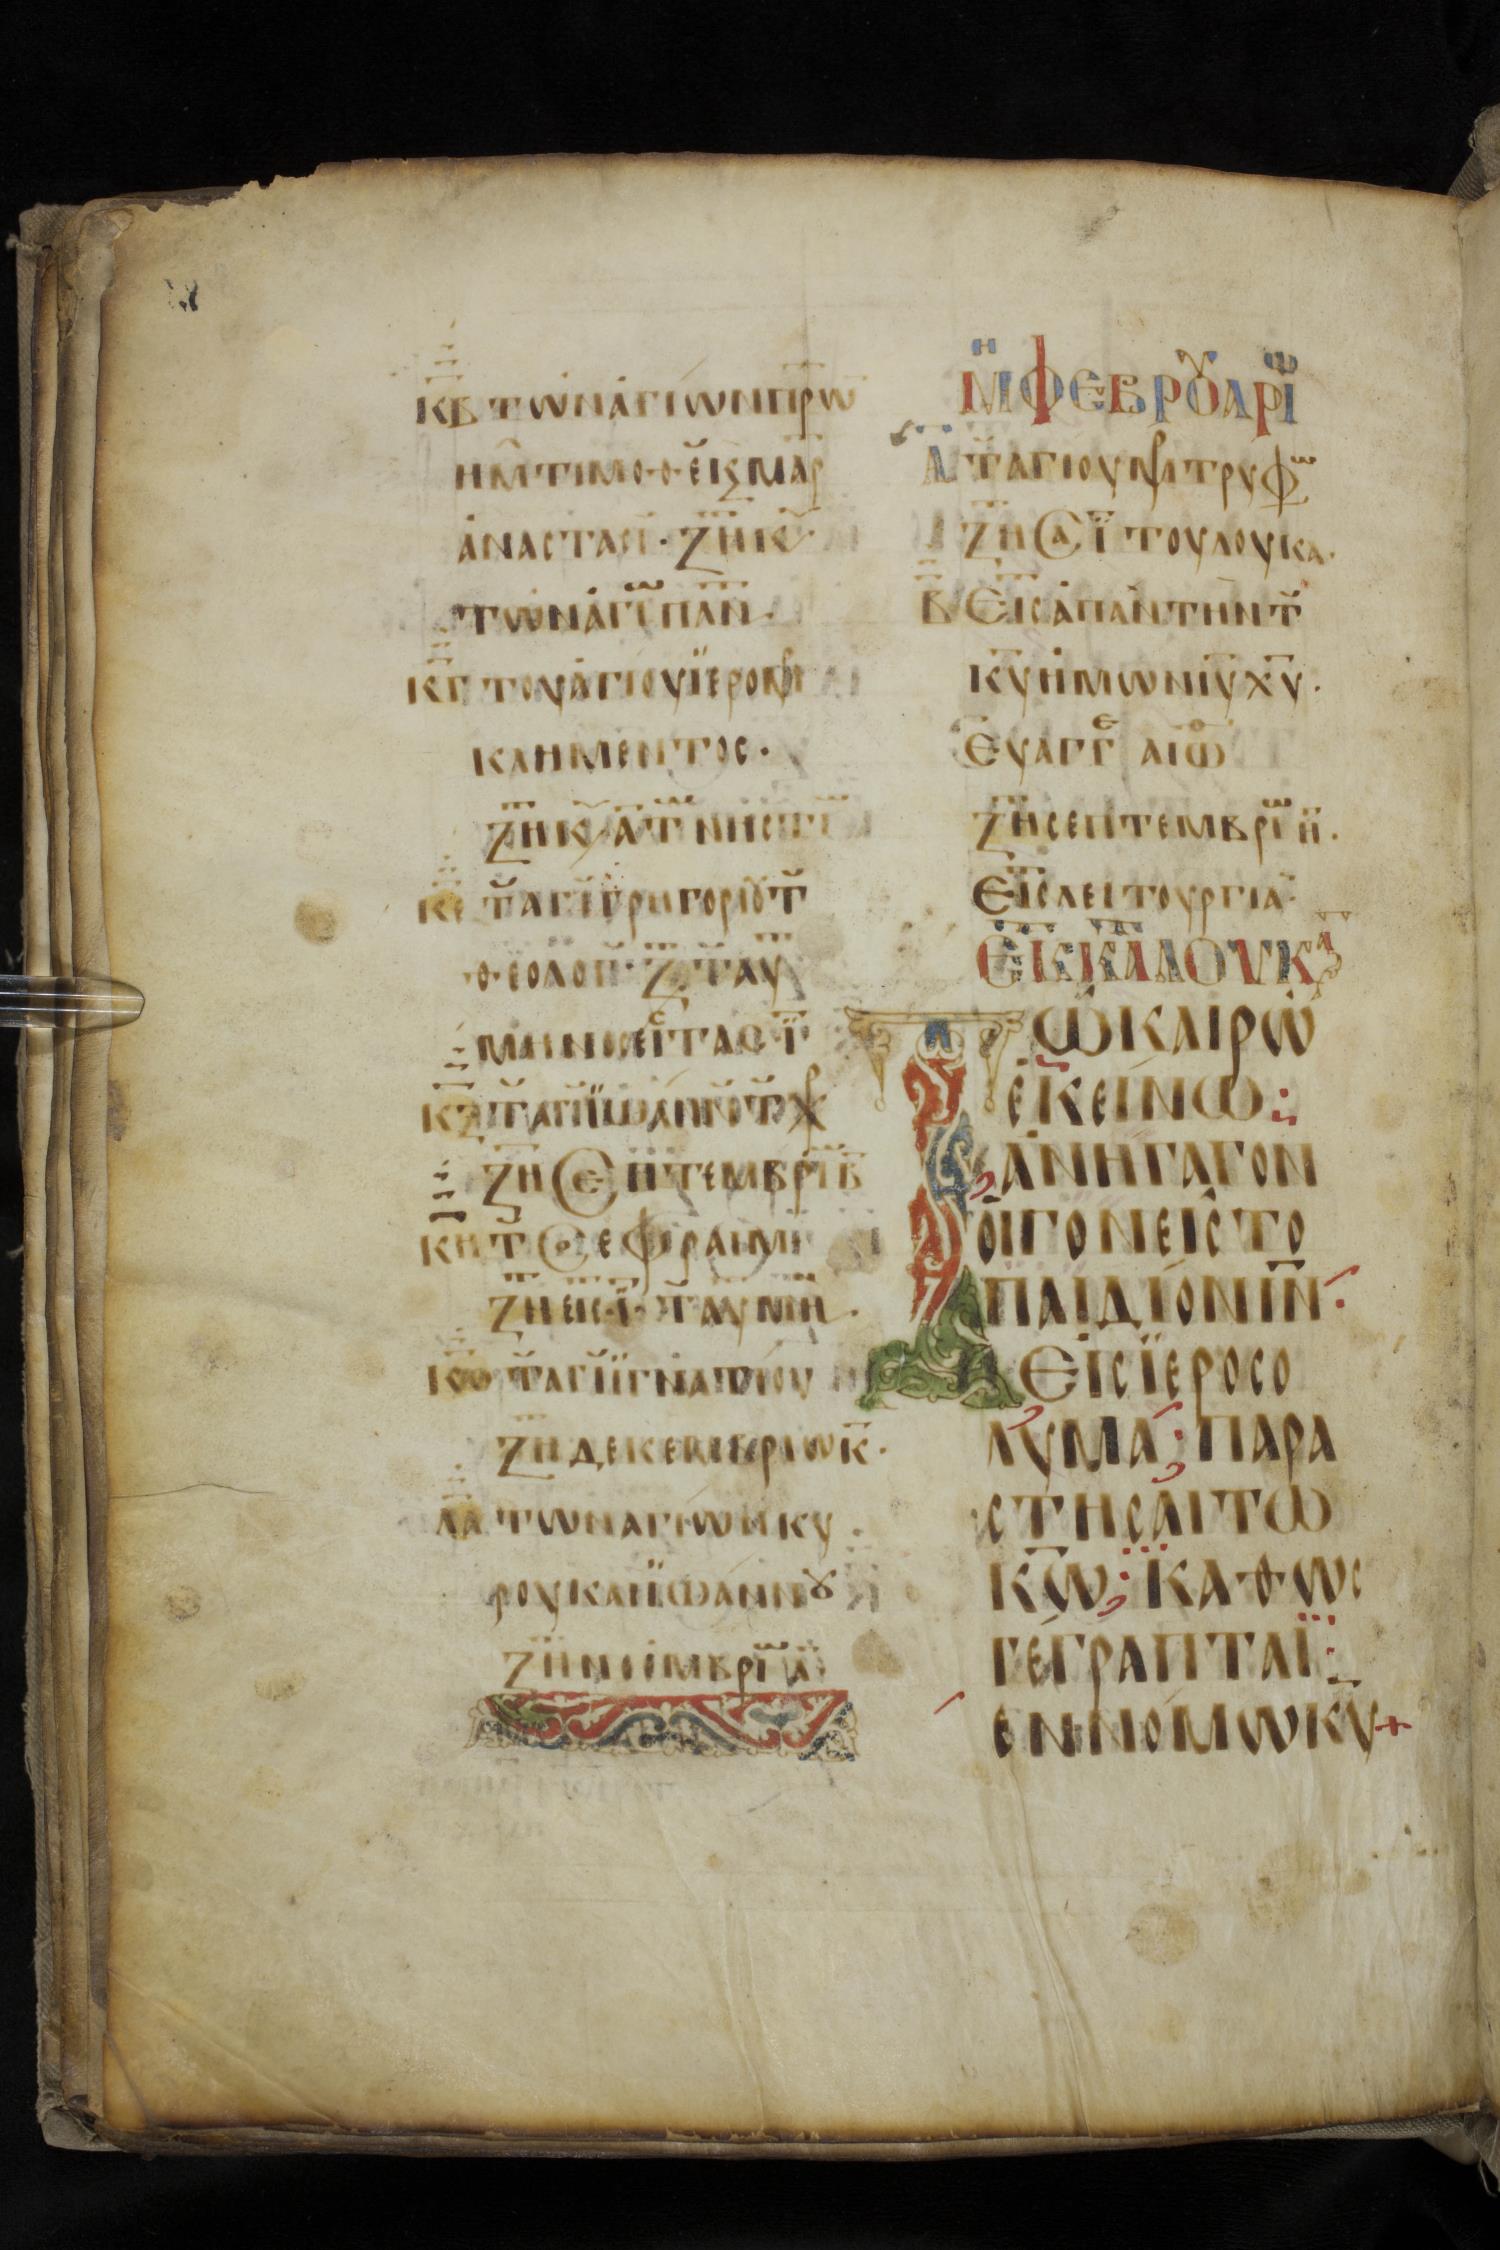 ΚΒ ΤΩΝ ΑΓΙΩΝ ΠΡΩ
Η Μ ΤΙΜΟΘ ΕΙΣ ΜΑΡ
ΑΝΑΣΤΑΣΙ · ΖΗ Κ
ΤΩΝ ΑΓΙ ΠΑΝ
ΚΓ ΤΟΥ ΑΓΙΟΥ ΙΕΡΟΜ
ΚΛΗΜΕΝΤΟΣ ·
ΖΗ Κ Α Τ ΝΗΣΤ
ΚΕ Τ ΑΓΙ ΓΡΗΓΟΡΙΟΥ Τ
ΘΕΟΛΟΓ · Ζ Τ ΑΥ
ΜΗΝΟΣ ΕΙΣ ΤΑΣ Ι
ΚΖ Τ ΑΓΙ ΙΩΑΝΝΟΥ Τ Χ
ΖΗ ΣΕΠΤΕΜΒΡΙ
ΚΗ Τ ΟΣ ΕΦΡΑΙΜ
ΖΗ ΕΙΣ Ι Τ ΑΥ ΜΗ ·
ΚΘ Τ ΑΓΙ ΙΓΝΑΤΙΟΥ
ΖΗ ΔΕΚΕΜΒΡΙΩ Κ ·
ΛΑ ΤΩΝ ΑΓΙΩΝ ΚΥ
ΡΟΥ ΚΑΙ ΙΩΑΝΝΟΥ
ΖΗ ΝΟΕΜΒΡΙΩ Α
ΜΗ ΦΕΒΡΟΥΑΡΙΩ
Α Τ ΑΓΙΟΥ Μ ΤΡΥΦΩ
ΖΗ ΣΑ Ι ΤΟΥ ΛΟΥΚΑ ·
Β ΕΙΣ ΑΠΑΝΤΗΝ Τ
ΚΥ ΗΜΩΝ ΙΥ ΧΥ ·
ΕΥΑΓΓΕ
ΖΗ ΣΕΠΤΕΜΒΡΙΩ Η ·
ΕΙΣ ΛΕΙΤΟΥΡΓΙΑ
ΕΚ Κ ΛΟΥΚΑ
ΤΩ ΚΑΙΡΩ
ΕΚΕΙΝΩ :
ΑΝΗΓΑΓΟΝ
ΟΙ ΓΟΝΕΙΣ ΤΟ
ΠΑΙΔΙΟΝ ΙΝ :
ΕΙΣ ΙΕΡΟΣΟ
ΛΥΜΑ : ΠΑΡΑ
ΣΤΗΣΑΙ ΤΩ
ΚΩ : ΚΑΘΩΣ
ΓΕΓΡΑΠΤΑΙ :
ΕΝ ΝΟΜΩ ΚΥ +